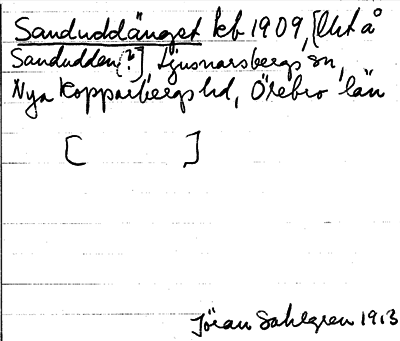 Sanduddänget kb 1909, [Ut å
Sandudden [?] Ljusnarsbergs sn,
Nya Kopparbergs hd, Örebro län
[ ]
Jöran Sahlgren 1913